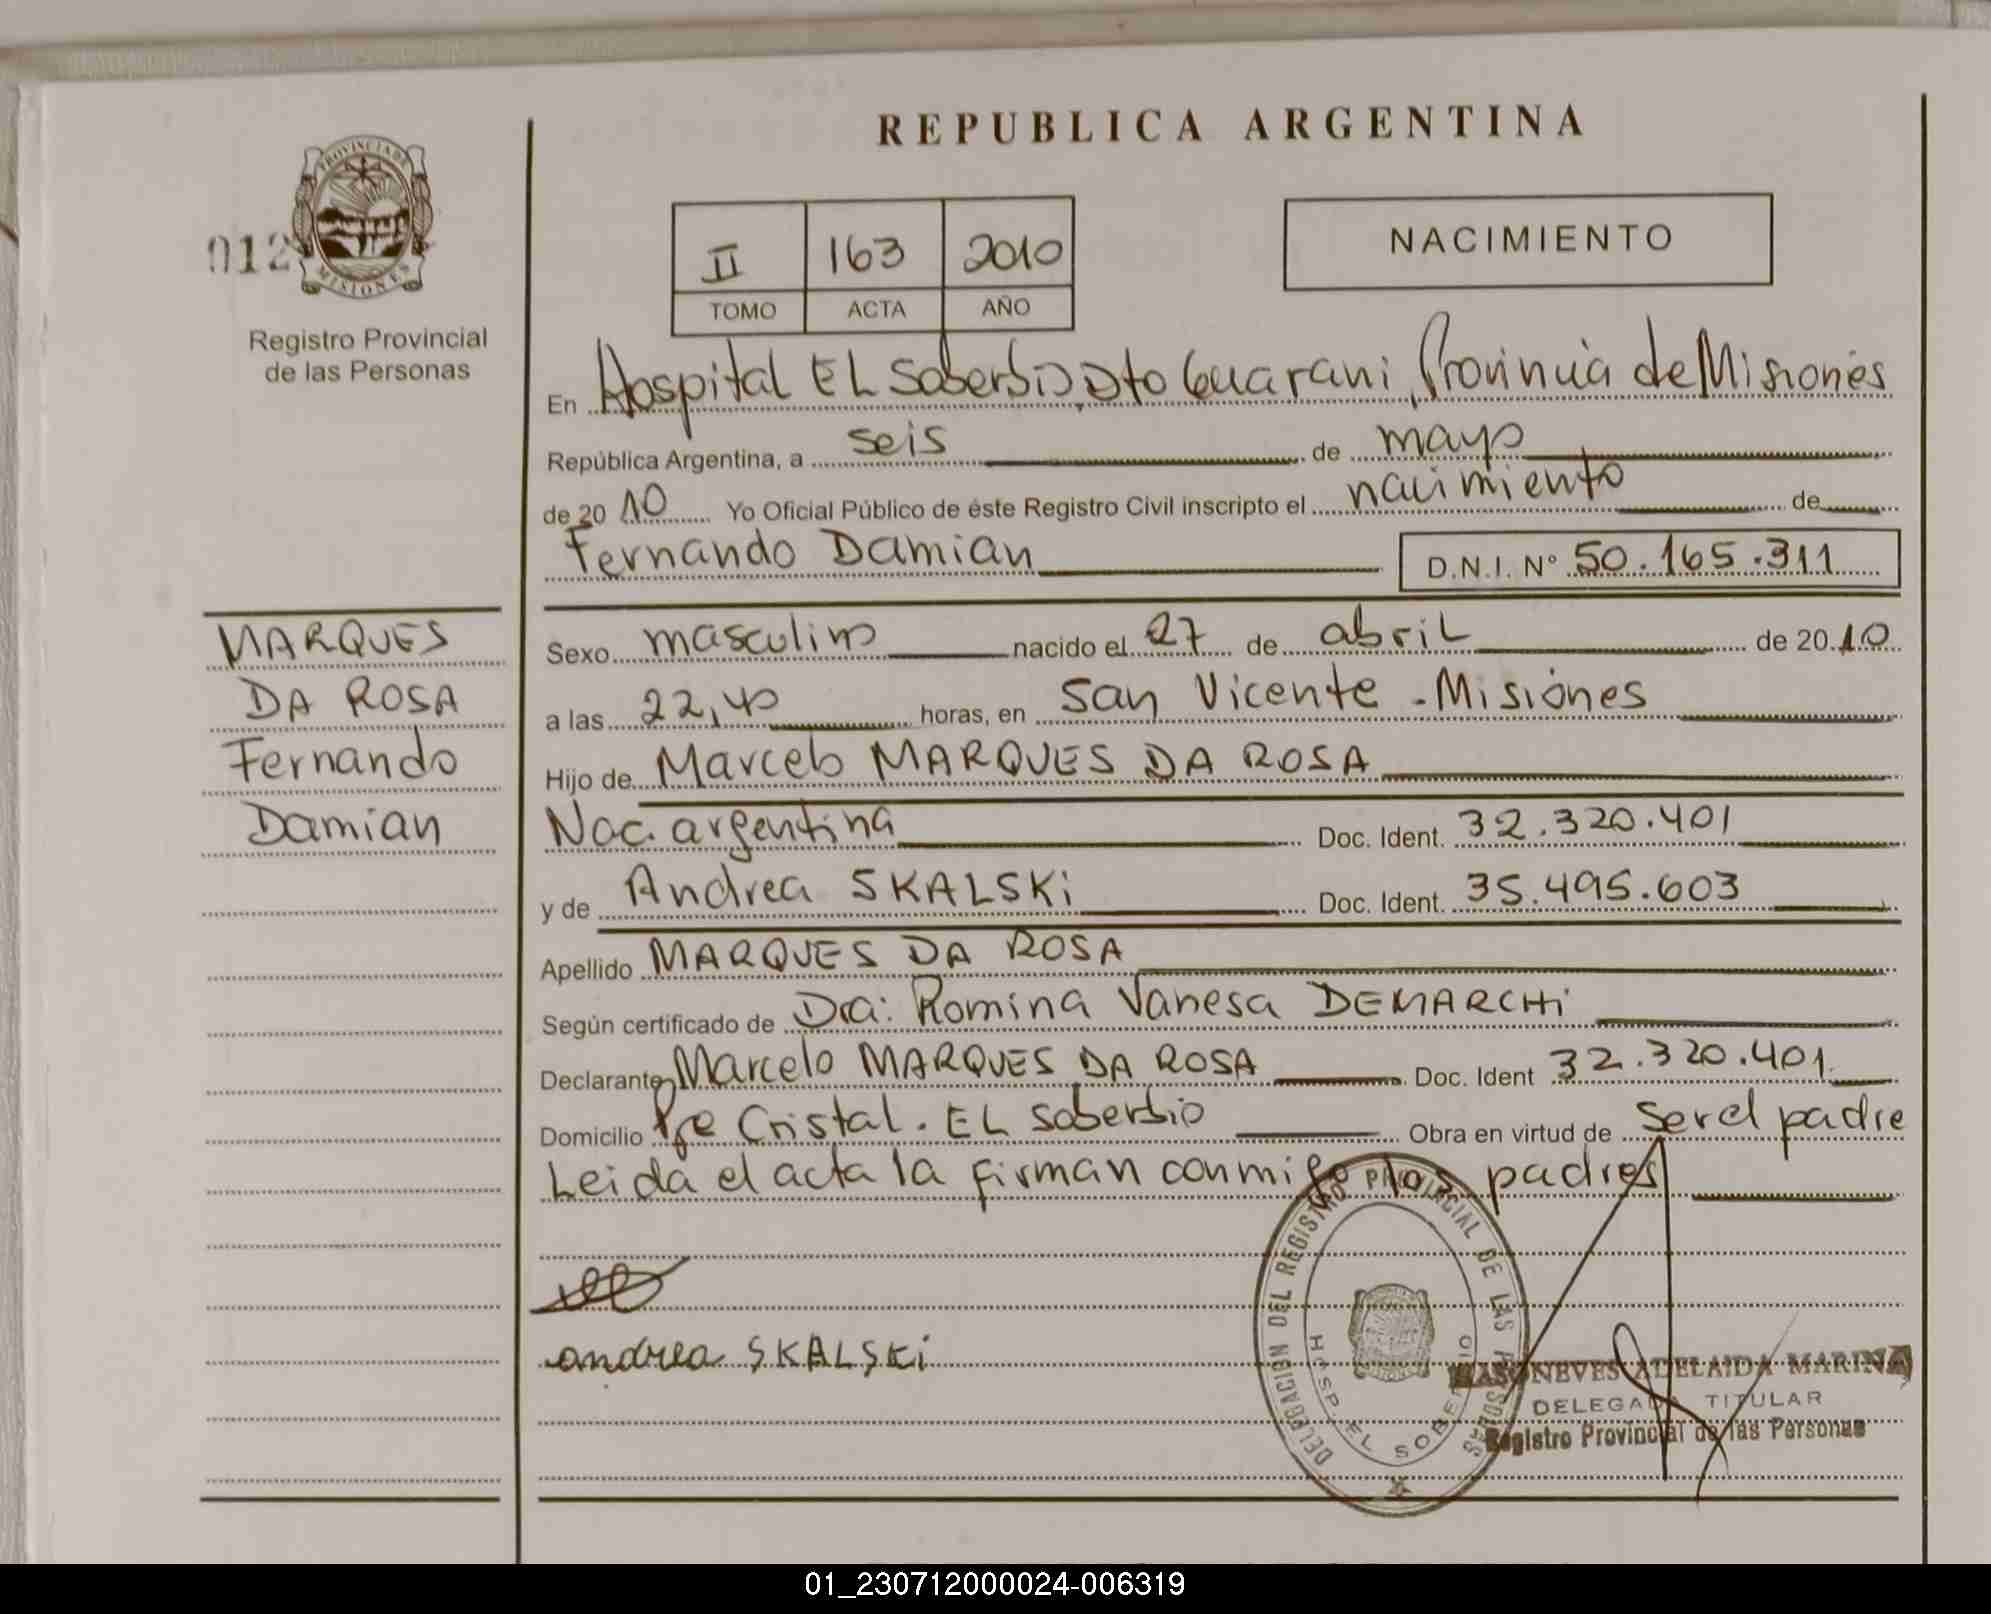 REPUBLICA ARGENTINA
PROVINCIA DE
MISIONES
012
Registro Provincial
de las Personas
II 163 2010
TOMO ACTA AÑO
NACIMIENTO
En Hospital EL Soberbio, Dto Guarani, Provincia de Misiones
República Argentina, a seis de mayo
de 20 10 Yo Oficial Público de éste Registro Civil inscripto el nacimiento de
Fernando Damian D.N.I. N° 50.165.311
MARQUES
DA ROSA
Fernando
Damian
Sexo masculino nacido el 27 de abril de 20 10
a las 22,40 horas, en San Vicente - Misiones
Hijo de Marcelo MARQUES DA ROSA
Nac. argentina Doc. Ident. 32.320.401
y de Andrea SKALSKi Doc. Ident. 35.495.603
Apellido MARQUES DA ROSA
Según certificado de Dra: Romina Vanesa DEMARCHi
Declarante Marcelo MARQUES DA ROSA Doc. Ident 32.320.401
Domicilio Pje Cristal. EL Soberbio Obra en virtud de ser el padre
Leida el acta la firman conmigo los padres
andrea SKALSKi
DELEGACION DEL REGISTRO PROVINCIAL DE LAS PERSONAS
HOSP. EL SOBERBIO
NEVES ADELAIDA MARINA
DELEGADA TITULAR
Registro Provincial de las Personas
01_230712000024-006319